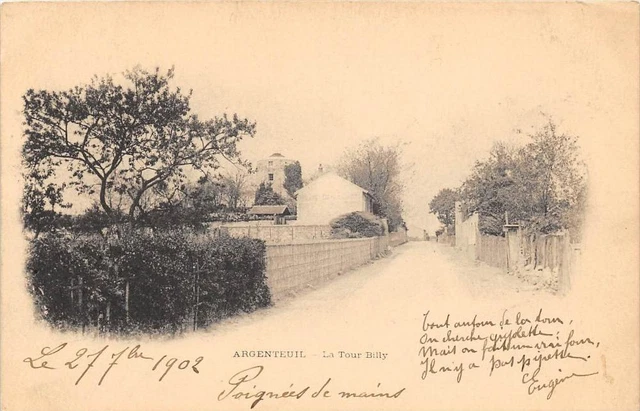 ARGENTEUIL - La Tour Billy
Le 27 7bre 1902
Poignées de mains
Tout autour de la tour,
On cherche
Mais on
Il n'y a pas
Eugène